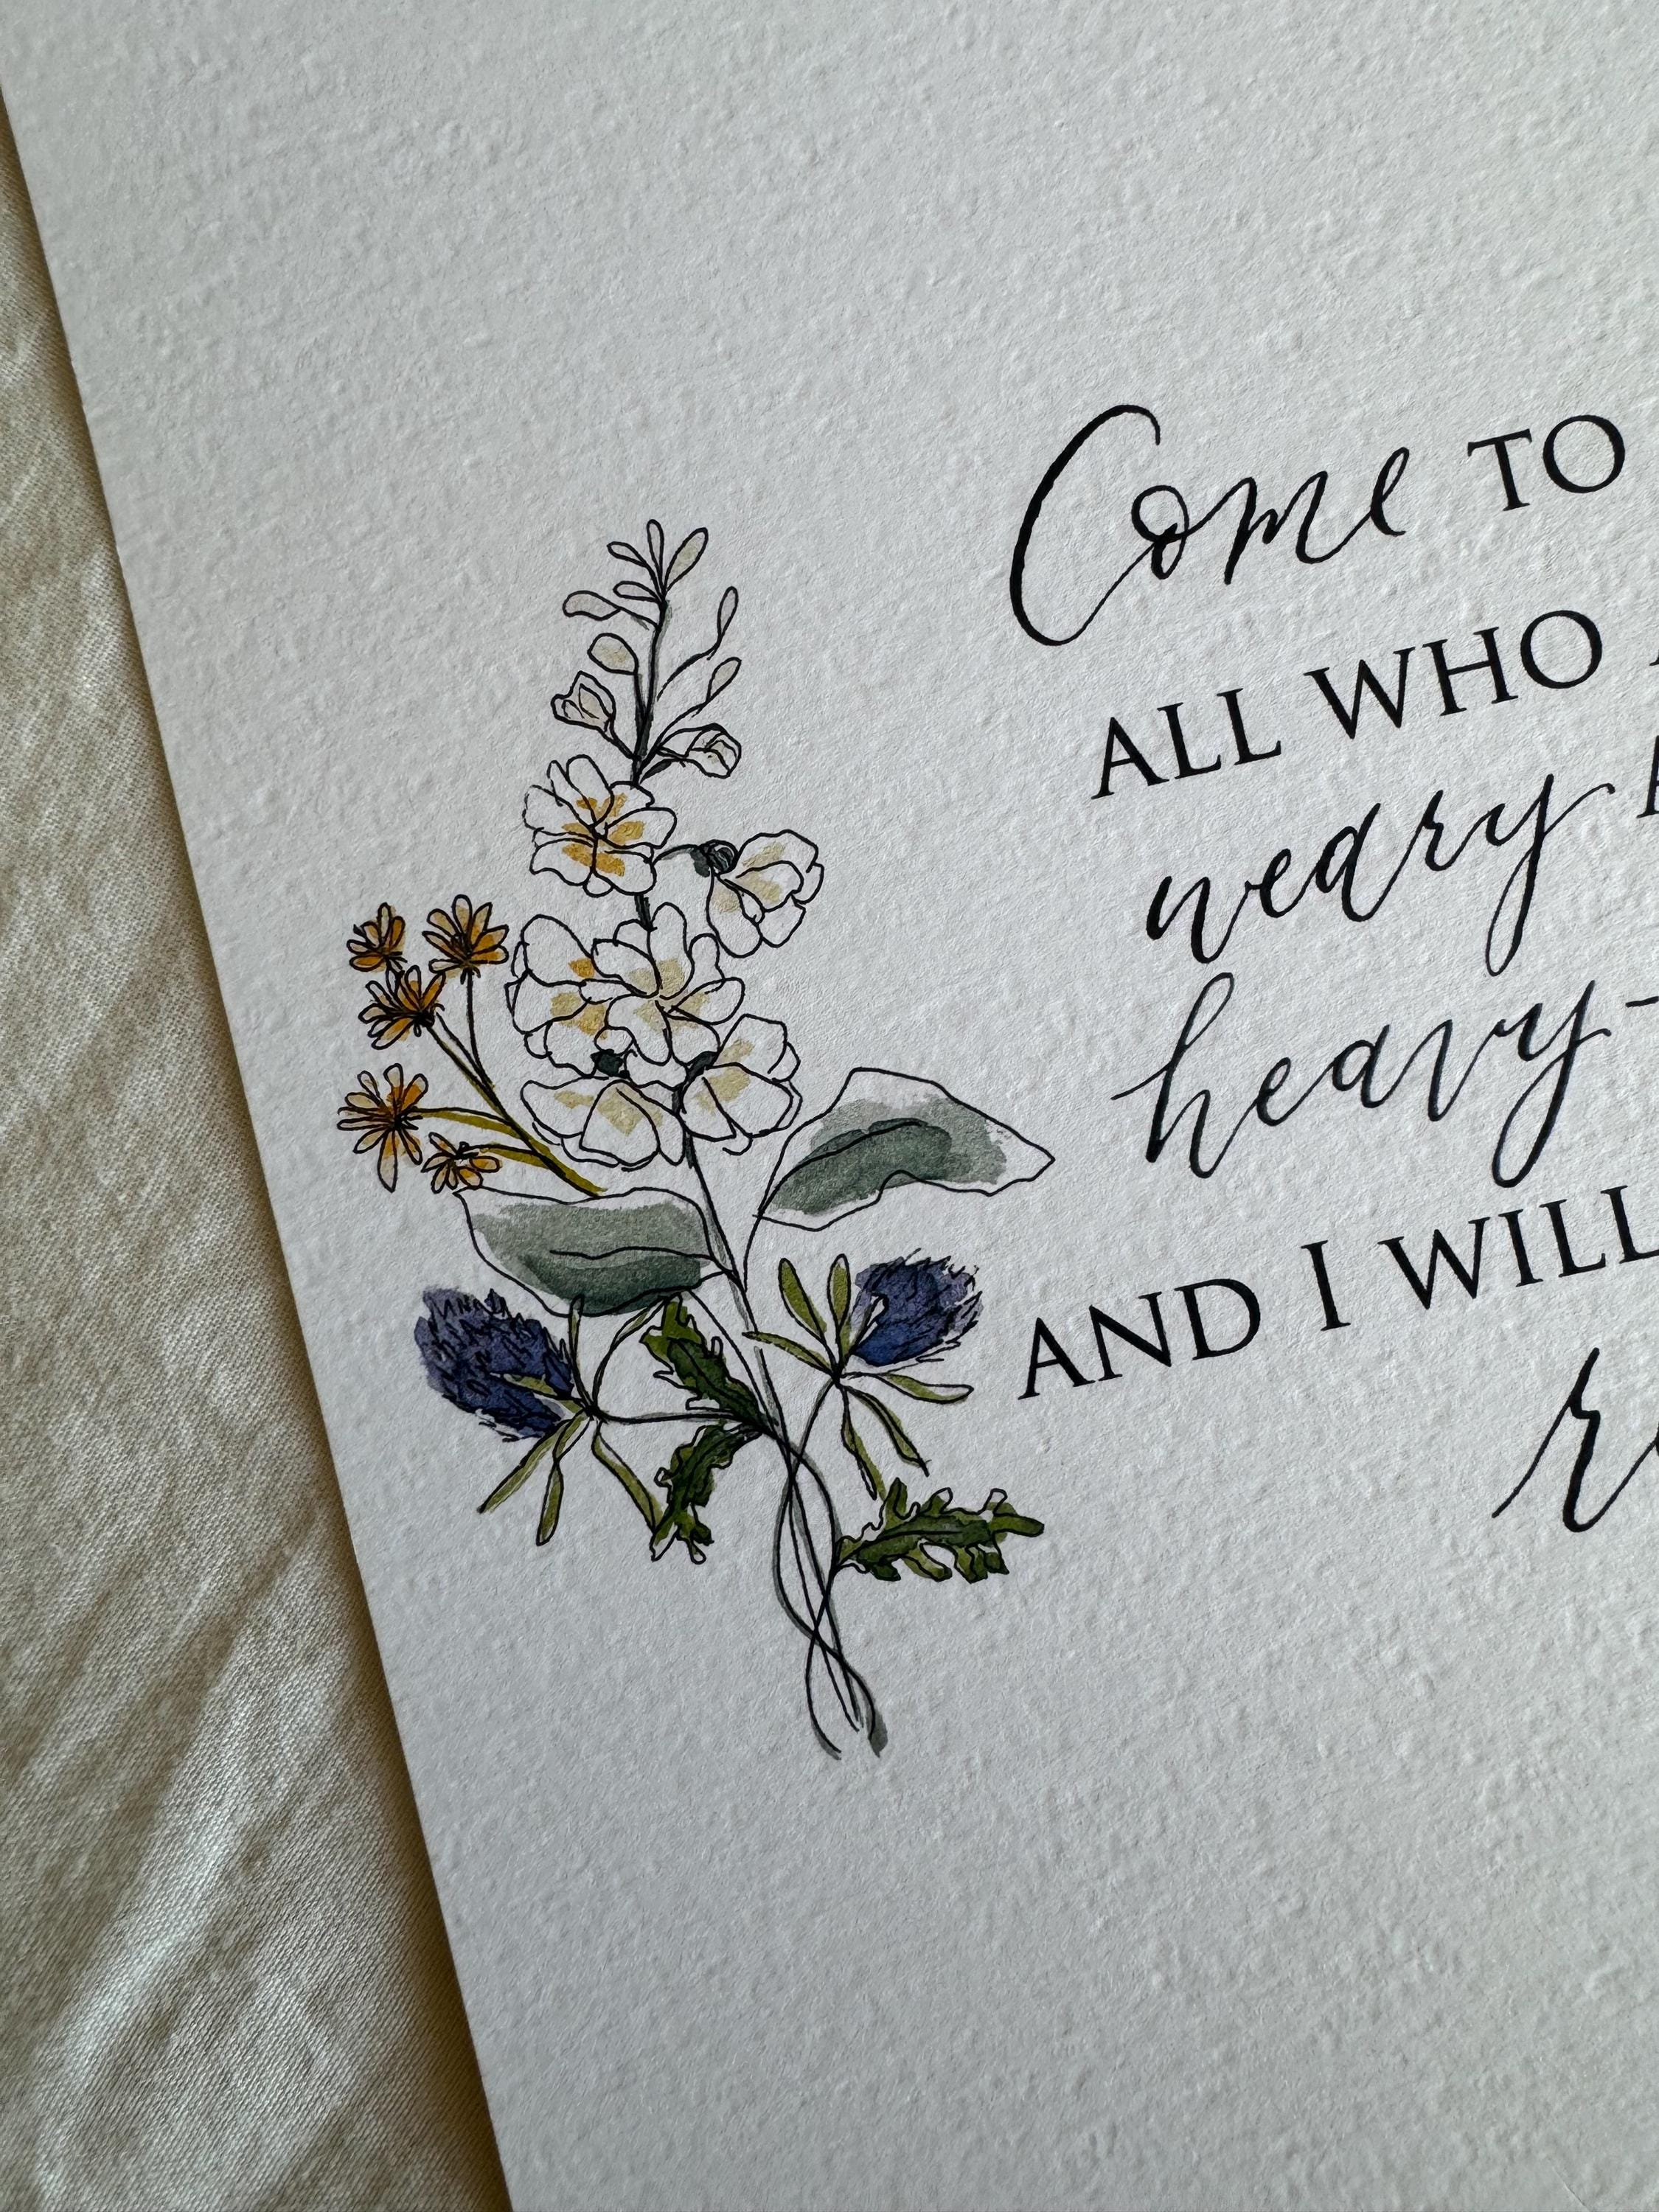 Come TO
ALL WHO
weary
heavy-
AND I WILL